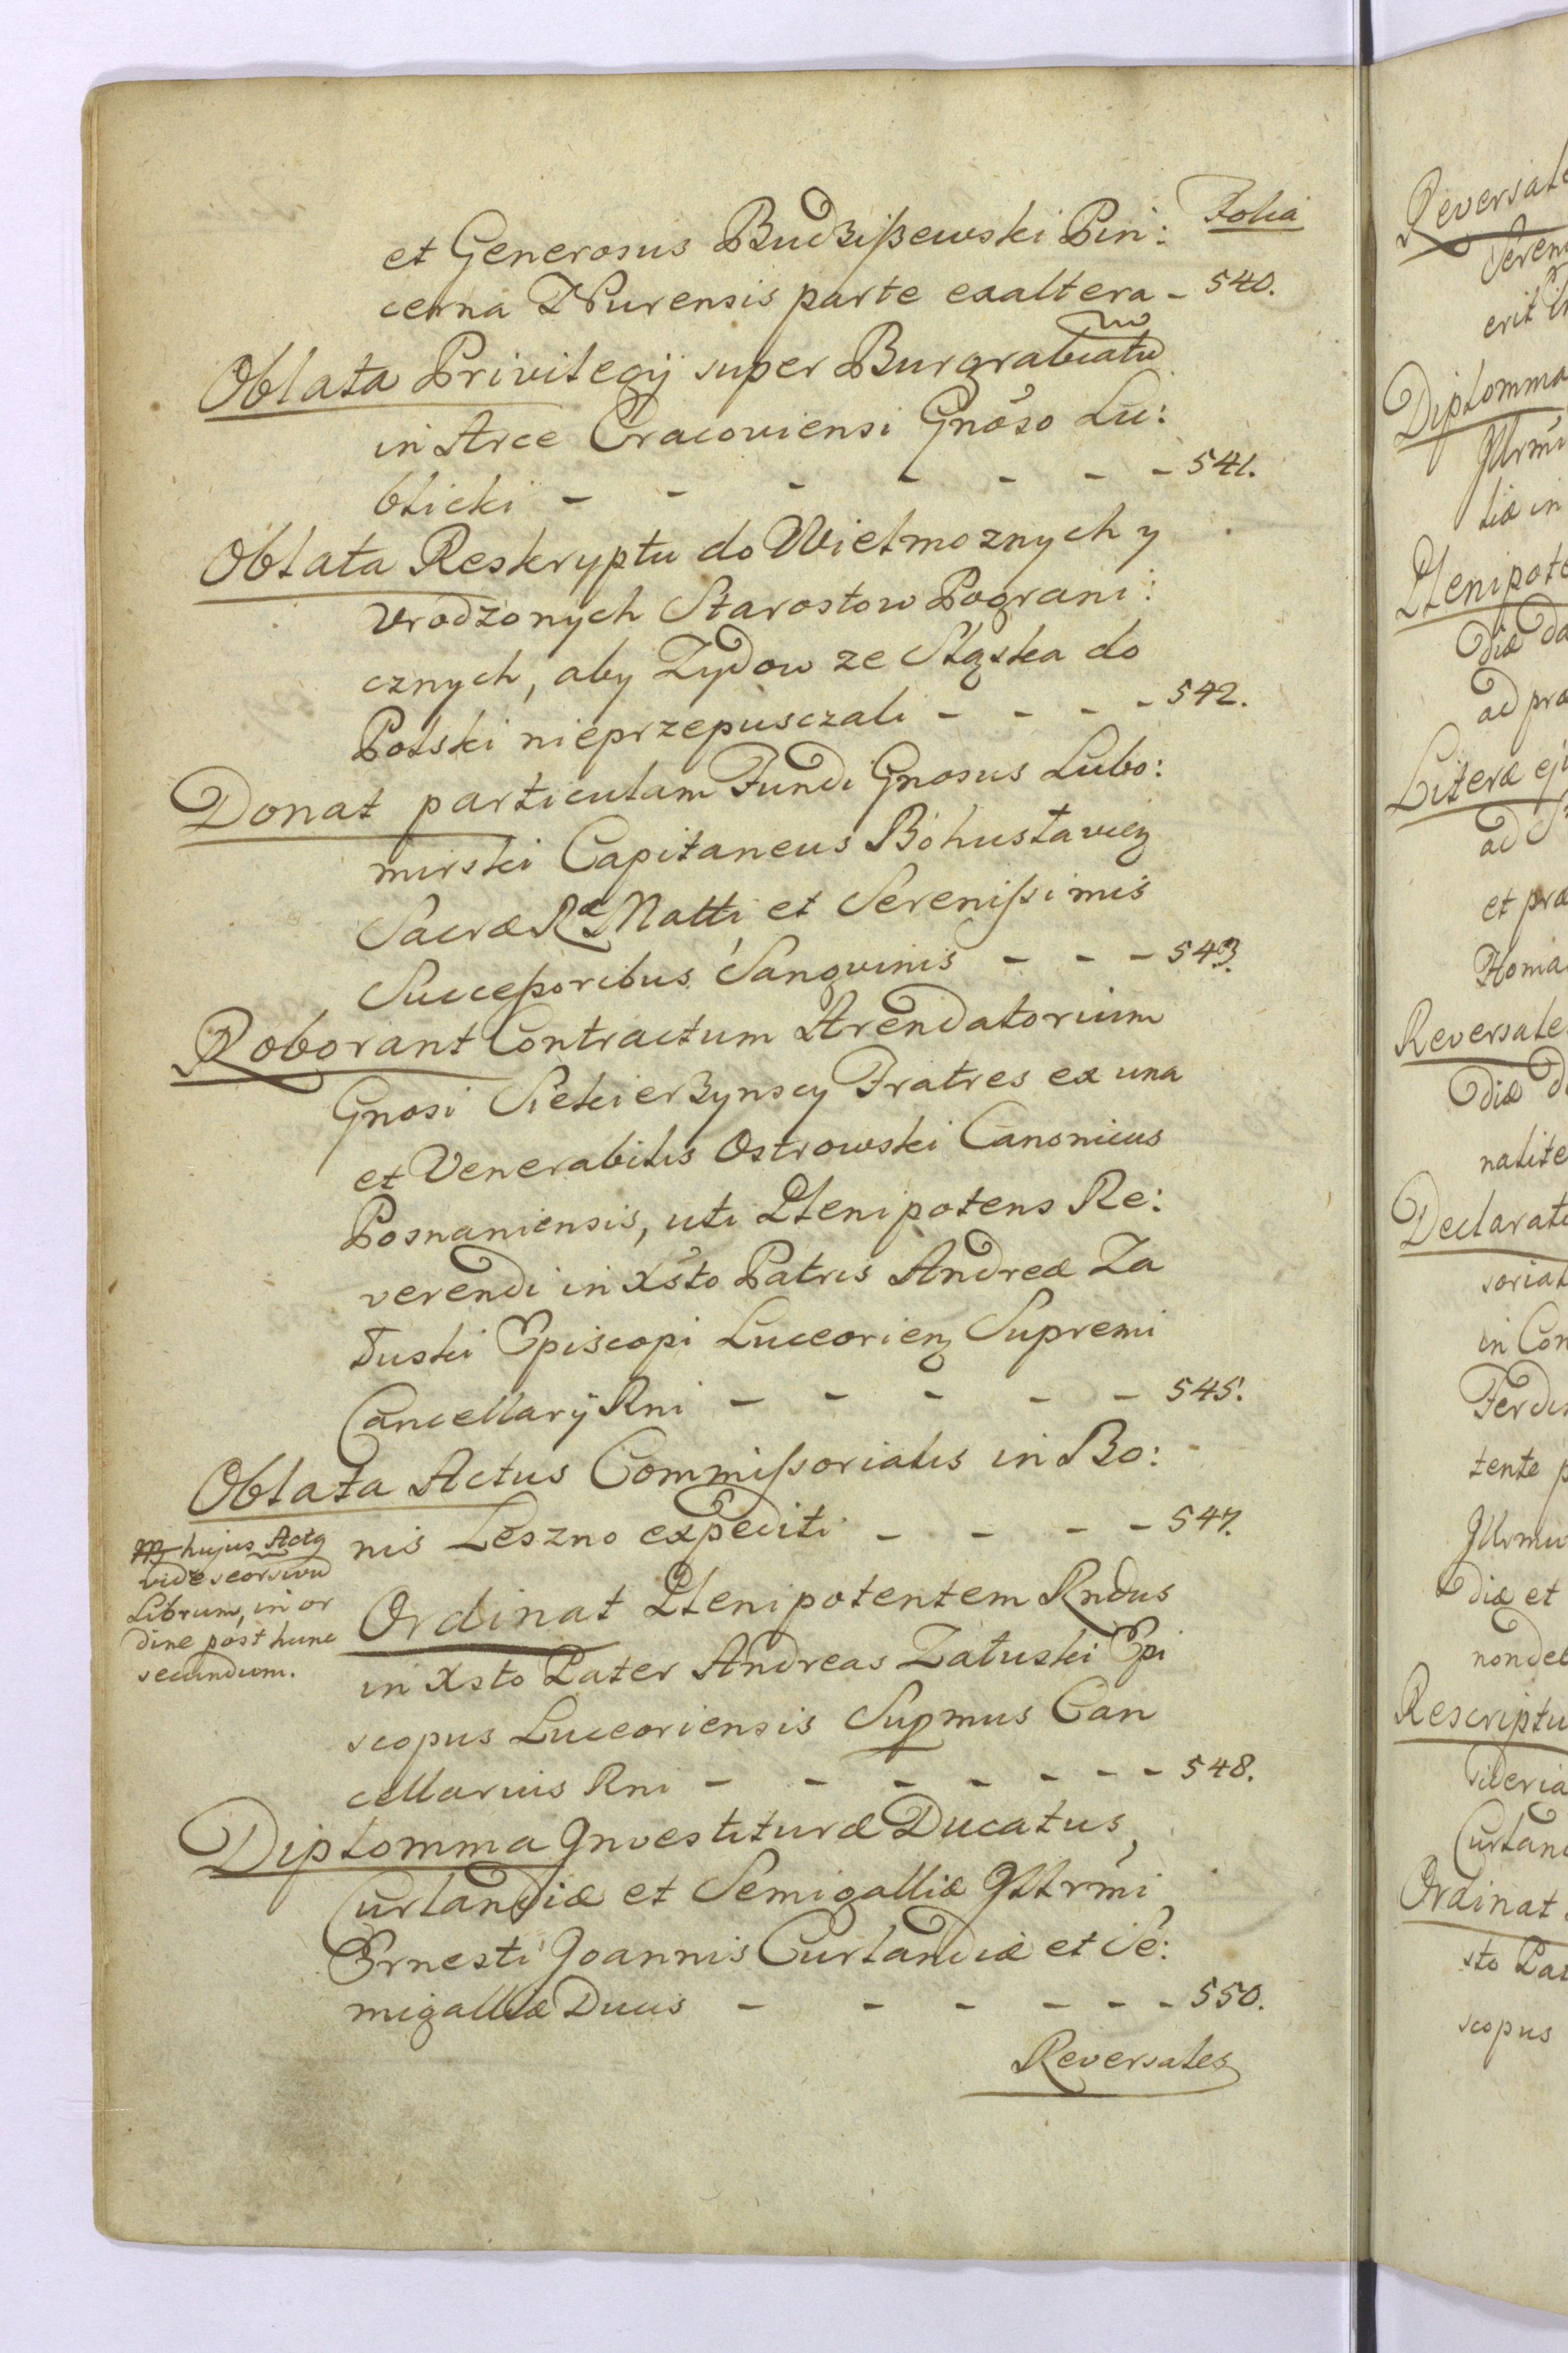 Folia
et Generosus Budziszewski Pin:
cerna Nurensis parte ex altera - 540.
Oblata Privilegij super Burgrabiatu
in Arce Cracoviensi Gnoso Lu:
blicki - - - - - - - 541.
Oblata Reskryptu do Wielmoznych y
Vrodzonych Starostow Pograni:
cznych, aby Zydow ze Sląska do
Polski nieprzepusczali - - - - 542.
Donat particulam Fundi Gnosus Lubo:
mirski Capitaneus Bohuslavien
Sacræ Ræ Matti et Serenissimis
Successoribus Sangvinis - - - 543.
Roborant Contractum Arendatorium
Gnosi Siekierzynscy Fratres ex una
et Venerabilis Ostrowski Canonicus
Posnaniensis, uti Plenipotens Re:
verendi in Xsto Patris Andreæ Za
łuski Episcopi Luceorien Supremi
Cancellarij Rni - - - - - 545.
Oblata Actus Commissorialis in Bo:
nis Leszno expediti - - - - 547.
hujus Actq
vide seorsivu
Librum, in or
dine post hunc
secundum.
Ordinat Plenipotentem Rndus
in Xsto Pater Andreas Załuski Epi
scopus Luceoriensis Supmus Can
cellarius Rni - - - - - - - 548.
Diplomma Investituræ Ducatus
Curlandiæ et Semigalliæ Illrmi
Ernesti Joannis Curlandiæ et Se:
migalliæ Ducis - - - - - - 550.
Reversales
Reversale
Diplomma
Illrmi
tiæ in
Plenipote
diæ Da
ad præ
Literæ ej
ad
et præ
Homa
Reversale
diæ D
nalite
Declarati
soriat
in Con
Ferdi
tente p
Illrmu
diæ et
non deb
Rescriptu
sideria
Curland
Ordinat
sto Pat
scopus